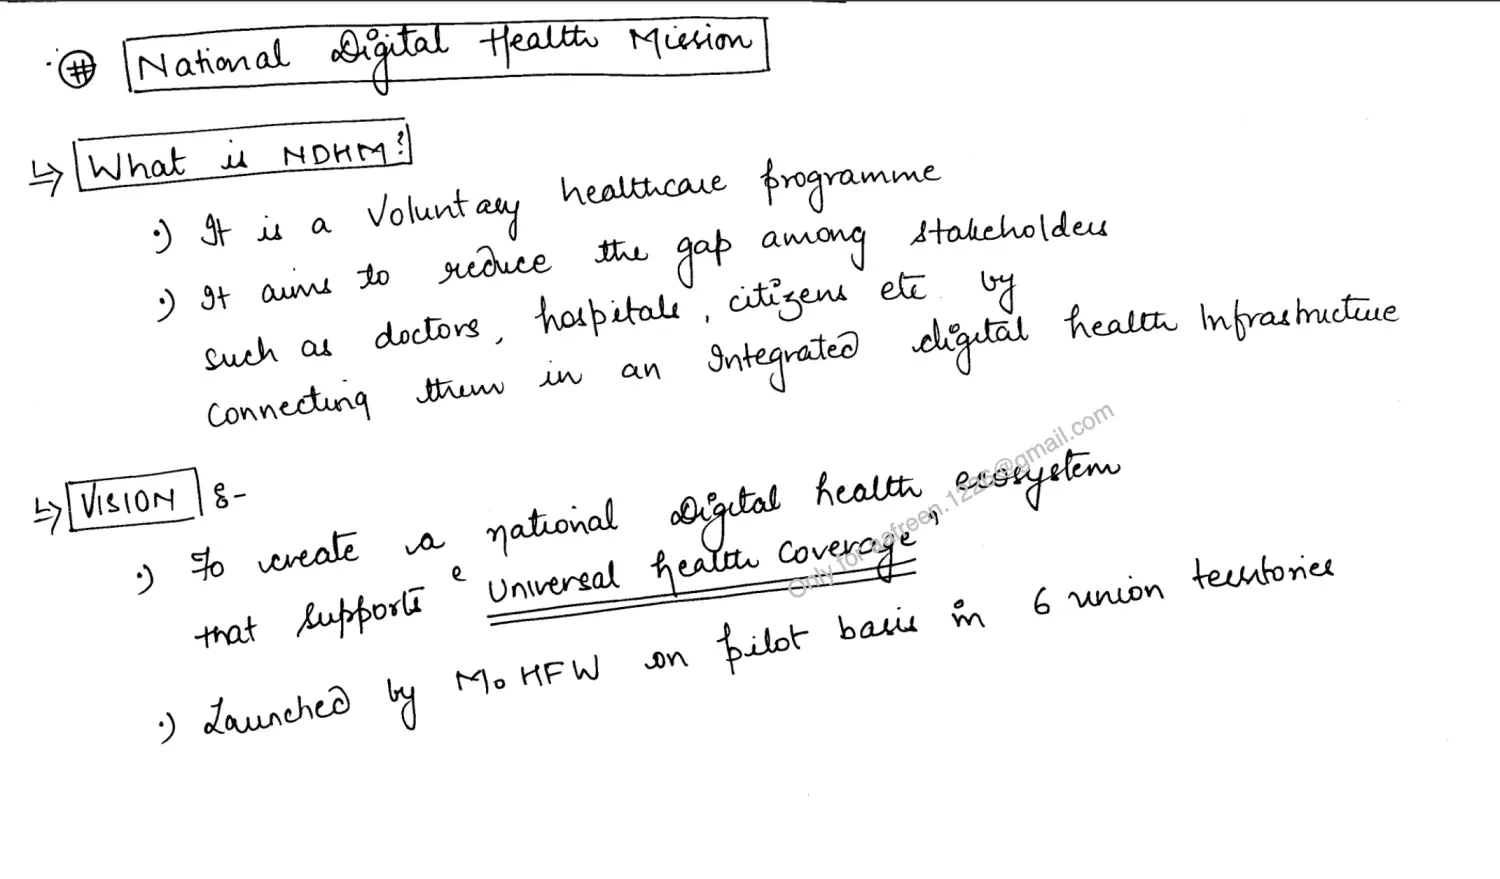 # National Digital Health Mission
↳ What is NDHM?
·) It is a Voluntary healthcare programme
·) It aims to reduce the gap among stakeholders
such as doctors, hospitals, citizens etc by
Connecting them in an Integrated digital health Infrastructure
↳ VISION :-
·) To create a national Digital health ecosystem
that supports "Universal health Coverage"
·) Launched by MoHFW on pilot basis in 6 union territories